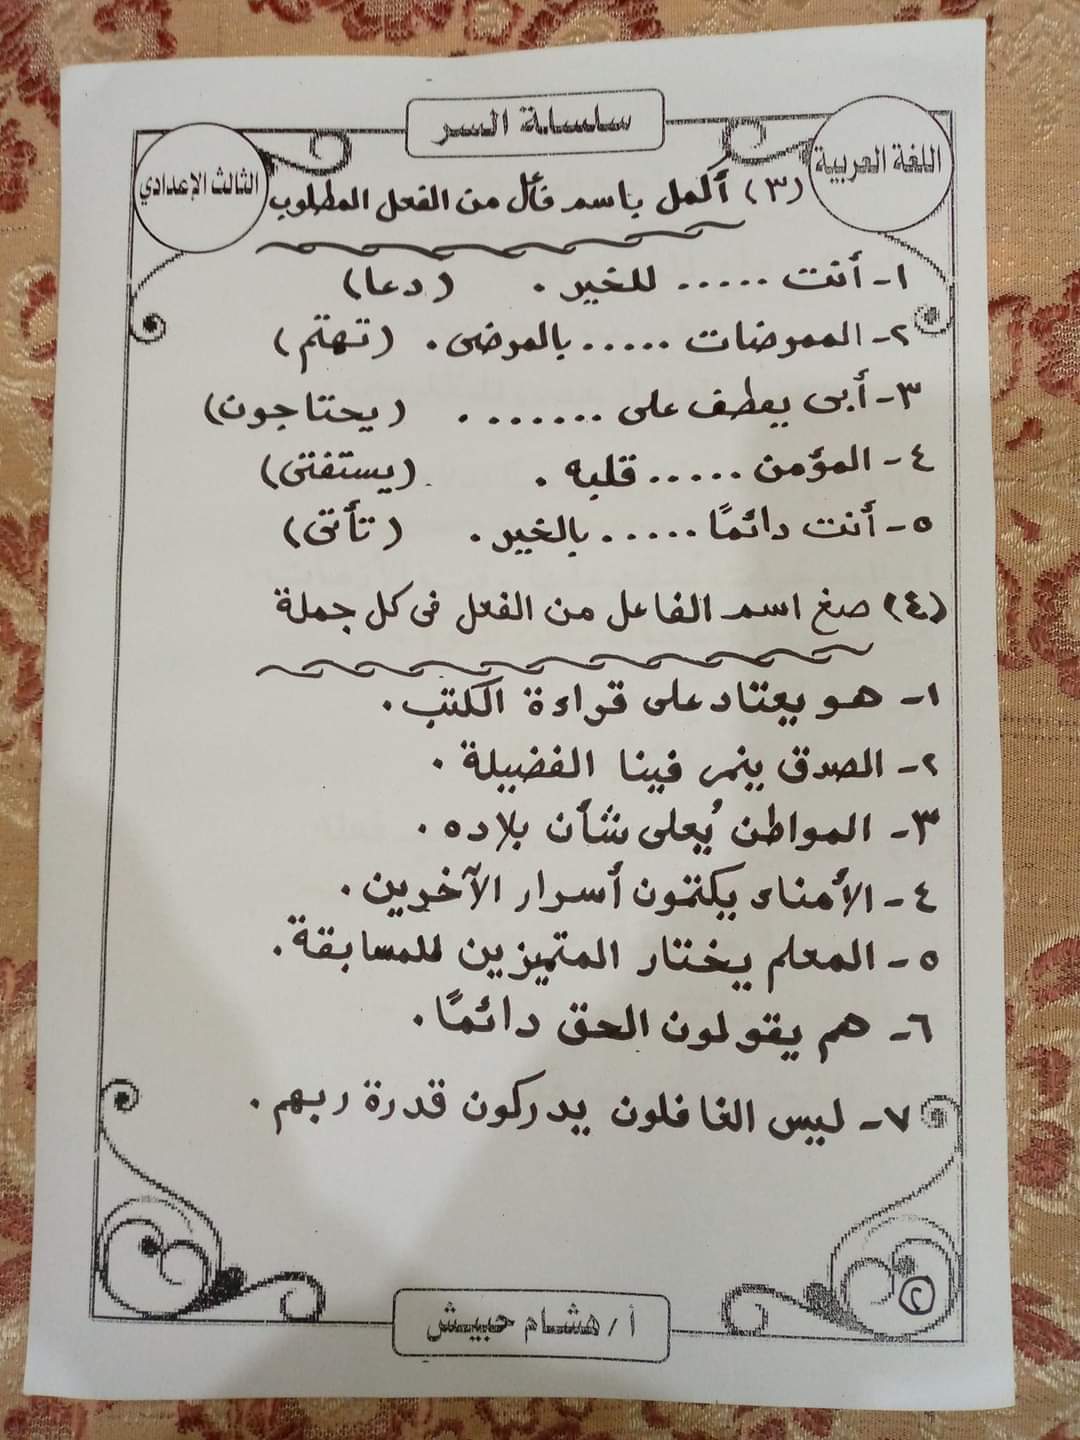 سلسلة السر
اللغة العربية
الثالث الإعدادي
(٣) أكمل باسم فاعل من الفعل المطلوب
١- أنت ..... للخير . (دعا)
٢- الممرضات ..... بالمرضى . (تهتم)
٣- أبى يعطف على ....... . (يحتاجون)
٤- المؤمن ..... قلبه . (يستفتى)
٥- أنت دائمًا ..... بالخير . (تأتى)
(٤) صغ اسم الفاعل من الفعل فى كل جملة
١- هو يعتاد على قراءة الكتب .
٢- الصدق ينمى فينا الفضيلة .
٣- المواطن يُعلى شأن بلاده .
٤- الأمناء يكتمون أسرار الآخرين .
٥- المعلم يختار المتميزين للمسابقة .
٦- هم يقولون الحق دائمًا .
٧- ليس الغافلون يدركون قدرة ربهم .
٢
أ/هشام حبيش